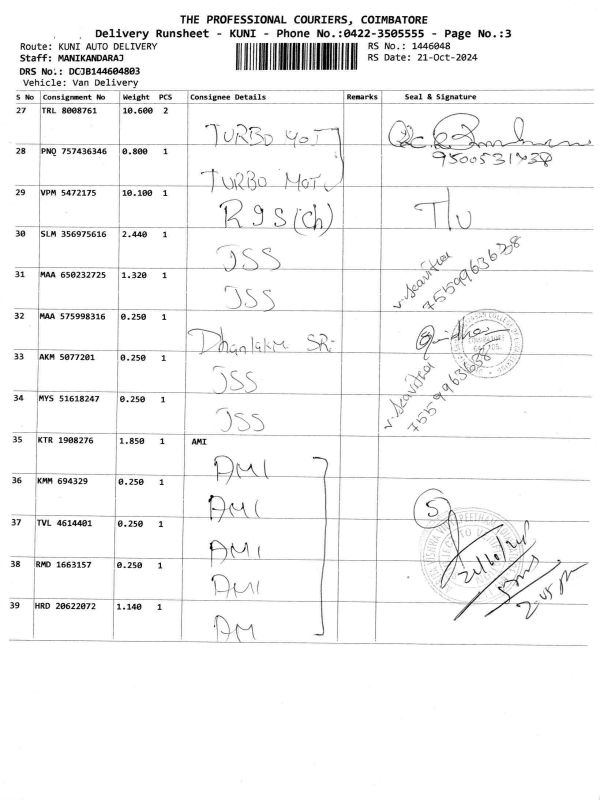 THE PROFESSIONAL COURIERS, COIMBATORE
Delivery Runsheet - KUNI - Phone No.:0422-3505555 - Page No.:3
Route: KUNI AUTO DELIVERY RS No.: 1446048
Staff: MANIKANDARAJ RS Date: 21-Oct-2024
DRS No.: DCJB144604803
Vehicle: Van Delivery
S No Consignment No Weight PCS Consignee Details Remarks Seal & Signature
27 TRL 8008761 10.600 2
TURBO MOT
28 PNQ 757436346 0.800 1 9500531738
TURBO MOT
29 VPM 5472175 10.100 1 R 9 S (Ch) T/U
30 SLM 356975616 2.440 1
JSS
31 MAA 650232725 1.320 1 7559963638
JSS
32 MAA 575998316 0.250 1
Dhanlakmi SRi
33 AKM 5077201 0.250 1
JSS 7559963638
34 MYS 51618247 0.250 1
JSS
35 KTR 1908276 1.850 1 AMI
AMI
36 KMM 694329 0.250 1
AMI 5
37 TVL 4614401 0.250 1
AMI 21/10/24
38 RMD 1663157 0.250 1
AMI 2.45 pm
39 HRD 20622072 1.140 1
AM